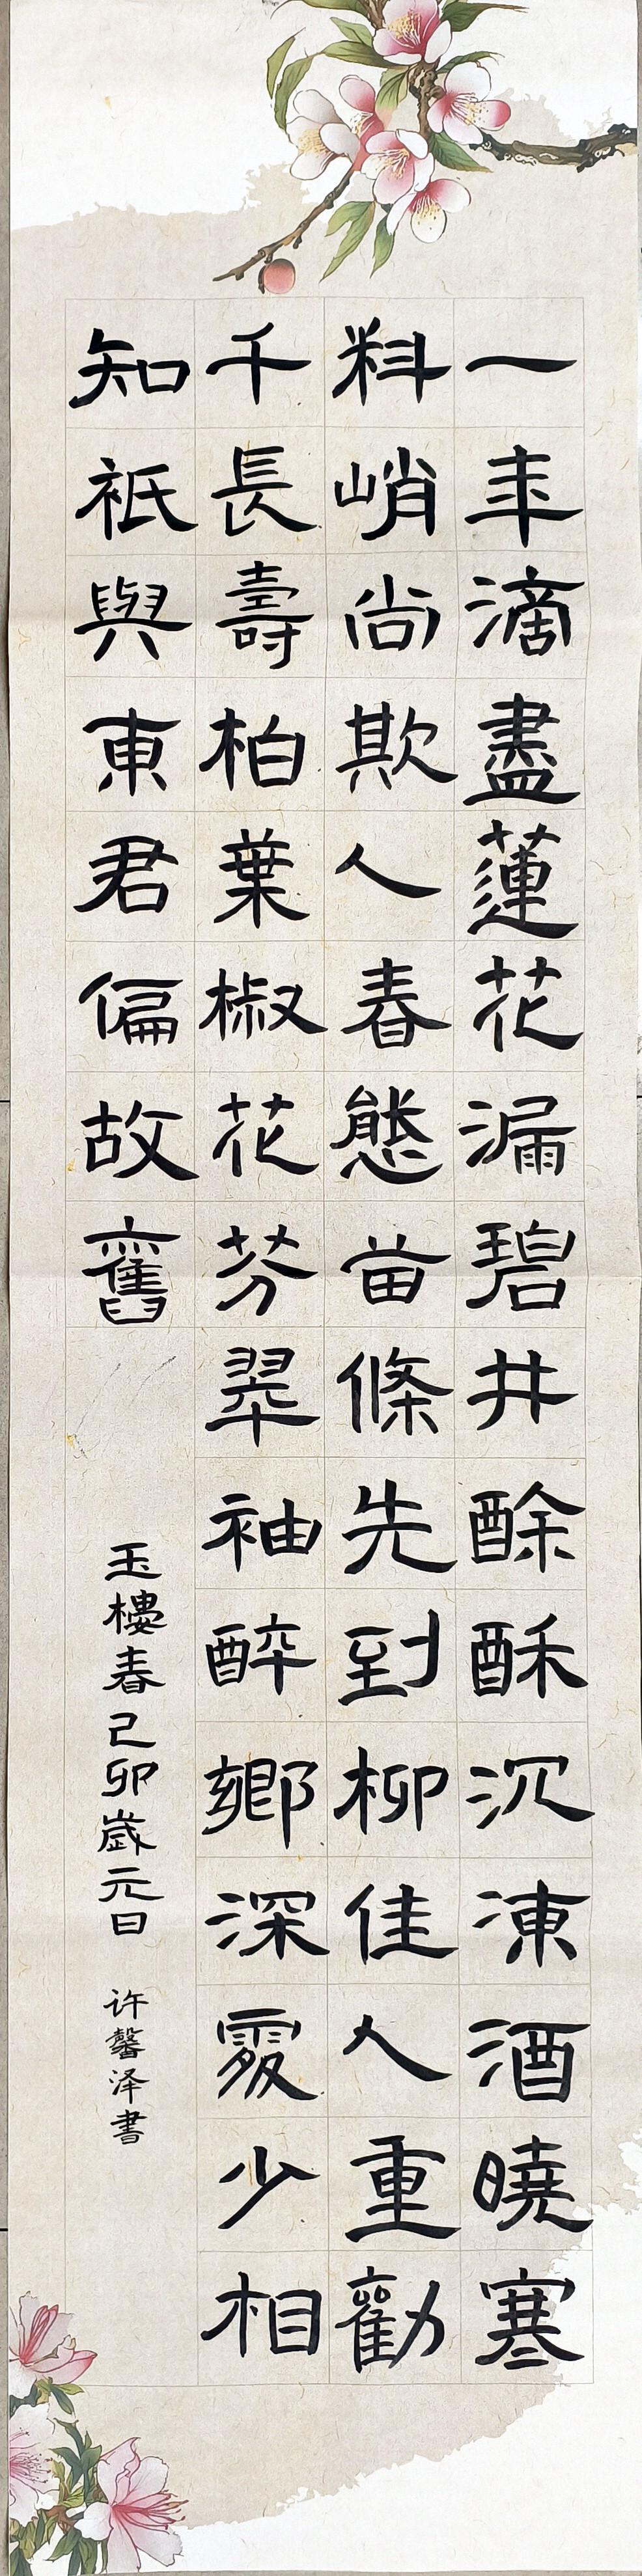 一年滴盡蓮花漏碧井酴酥沉凍酒曉寒
料峭尚欺人春態苗條先到柳佳人重勸
千長壽柏葉椒花芬翠袖醉鄉深處少相
知衹與東君偏故舊
玉樓春己卯歲元日
许馨泽書